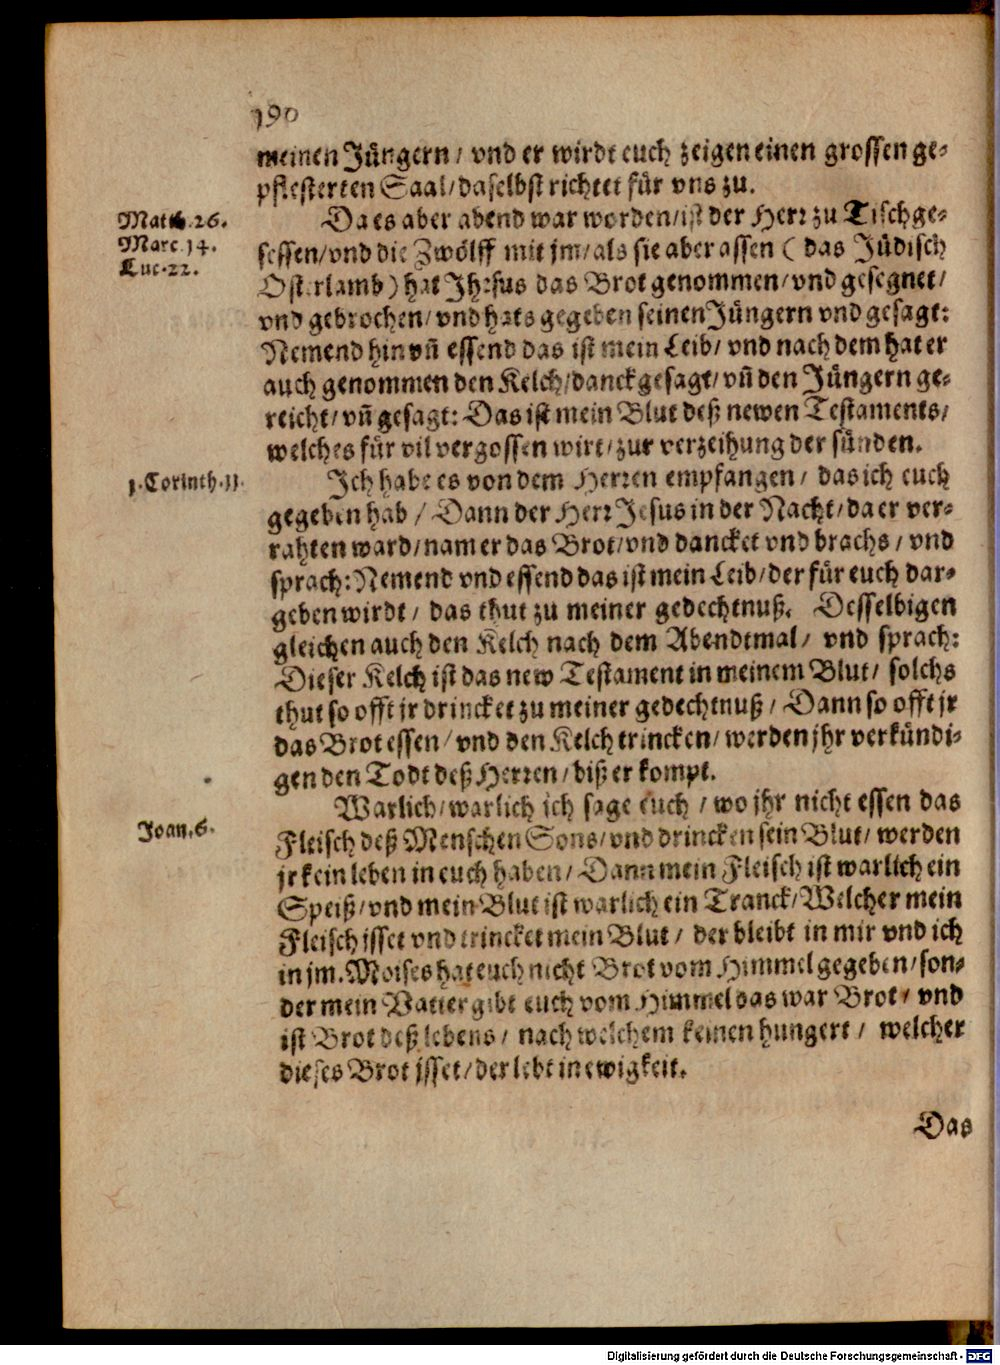 190
meinen Jüngern / vnd er wirdt euch zeigen einen grossen ge-
pflesterten Saal / daselbst richtet für vns zu.
Matth. 26.
Marc. 14.
Luc. 22.
Da es aber abend war worden / ist der Herr zu Tisch ge-
sessen / vnd die Zwölff mit jm / als sie aber assen ( das Jüdisch
Osterlamb ) hat Jhesus das Brot genommen / vnd gesegnet /
vnd gebrochen / vnd hats gegeben seinen Jüngern vnd gesagt:
Nemend hin vñ essend das ist mein Leib / vnd nach dem hat er
auch genommen den Kelch / danck gesagt / vñ den Jüngern ge-
reicht / vñ gesagt: Das ist mein Blut deß newen Testaments /
welches für vil vergossen wirt / zur verzeihung der sünden.
1. Corinth. 11.
Ich habe es von dem Herren empfangen / das ich euch
gegeben hab / Dann der Herr Jesus in der Nacht / da er ver-
rahten ward / nam er das Brot / vnd dancket vnd brachs / vnd
sprach: Nemend vnd essend das ist mein Leib / der für euch dar-
geben wirdt / das thut zu meiner gedechtnuß. Desselbigen
gleichen auch den Kelch nach dem Abendtmal / vnd sprach:
Dieser Kelch ist das new Testament in meinem Blut / solchs
thut so offt jr drincket zu meiner gedechtnuß / Dann so offt jr
das Brot essen / vnd den Kelch trincken / werden jhr verkündi-
gen den Todt deß Herren / biß er kompt.
Joan. 6.
Warlich / warlich ich sage euch / wo jhr nicht essen das
Fleisch deß Menschen Sons / vnd drincken sein Blut / werden
jr kein leben in euch haben / Dann mein Fleisch ist warlich ein
Speiß / vnd mein Blut ist warlich ein Tranck / Welcher mein
Fleisch isset vnd trincket mein Blut / der bleibt in mir vnd ich
in jm. Moises hat euch nicht Brot vom Himmel gegeben / son-
der mein Vatter gibt euch vom Himmel das war Brot / vnd
ist Brot deß lebens / nach welchem keinen hungert / welcher
dieses Brot isset / der lebt in ewigkeit.
Das
Digitalisierung gefördert durch die Deutsche Forschungsgemeinschaft - DFG